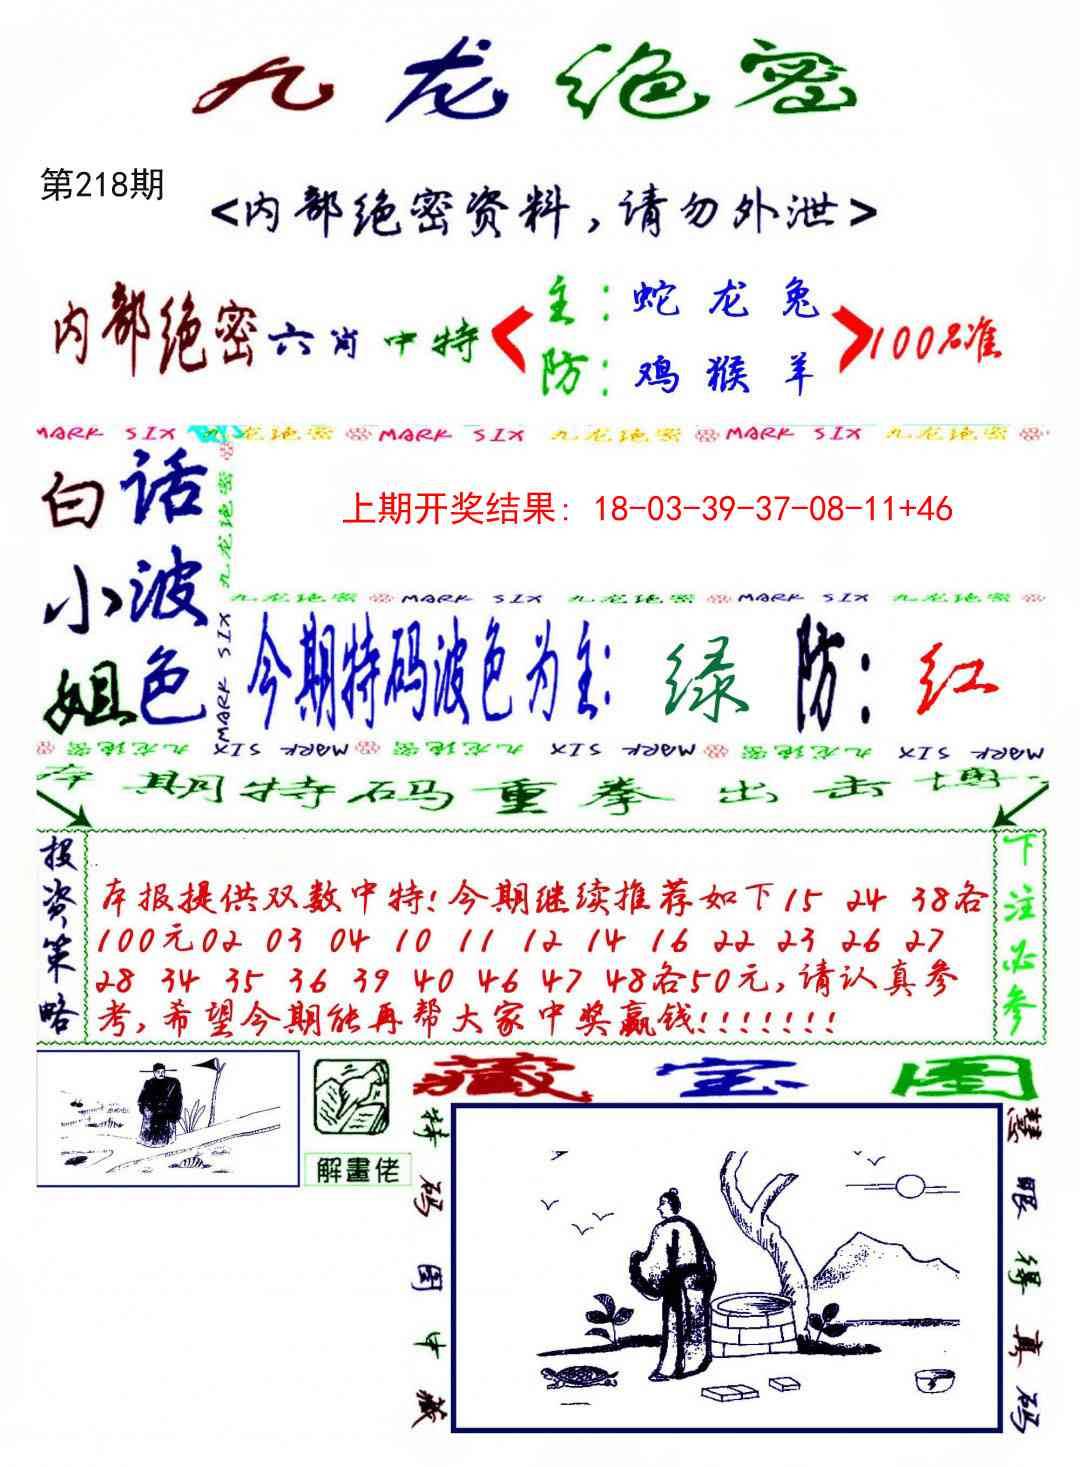 九龙绝密
第218期
<内部绝密资料,请勿外泄>
内部绝密六肖中特
主:蛇 龙 兔
防:鸡 猴 羊
100%准
MARK SIX 九龙绝密 MARK SIX 九龙绝密 MARK SIX 九龙绝密
白话小波姐色
九龙绝密 MARK SIX
上期开奖结果: 18-03-39-37-08-11+46
九龙绝密 MARK SIX 九龙绝密 MARK SIX 九龙绝密
今期特码波色为主: 绿 防: 红
九龙绝密 MARK SIX 九龙绝密 MARK SIX 九龙绝密 MARK SIX
本期特码重拳出击博
投资策略
本报提供双数中特!今期继续推荐如下15 24 38各
100元02 03 04 10 11 12 14 16 22 23 26 27
28 34 35 36 39 40 46 47 48各50元,请认真参
考,希望今期能再帮大家中奖赢钱!!!!!!!
下注必参
解畫佬
藏宝图
特码图中藏
慧眼得真码